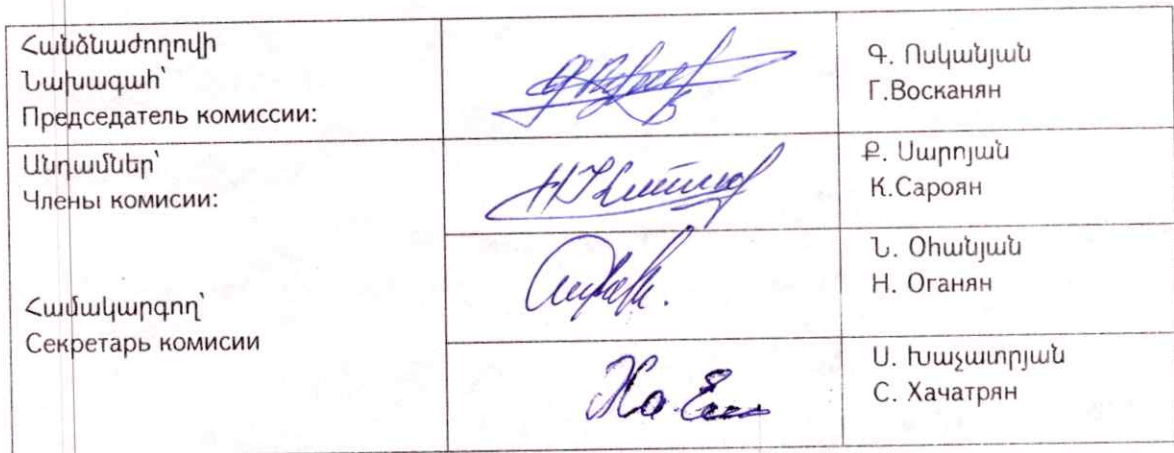 Հանձնաժողովի
Նախագահ՝
Председатель комиссии:
Գ. Ոսկանյան
Г.Восканян
Անդամներ՝
Члены комисии:
Ք. Սարոյան
К.Сароян
Ն. Օհանյան
Н. Оганян
Համակարգող՝
Секретарь комисии
Ս. Խաչատրյան
С. Хачатрян